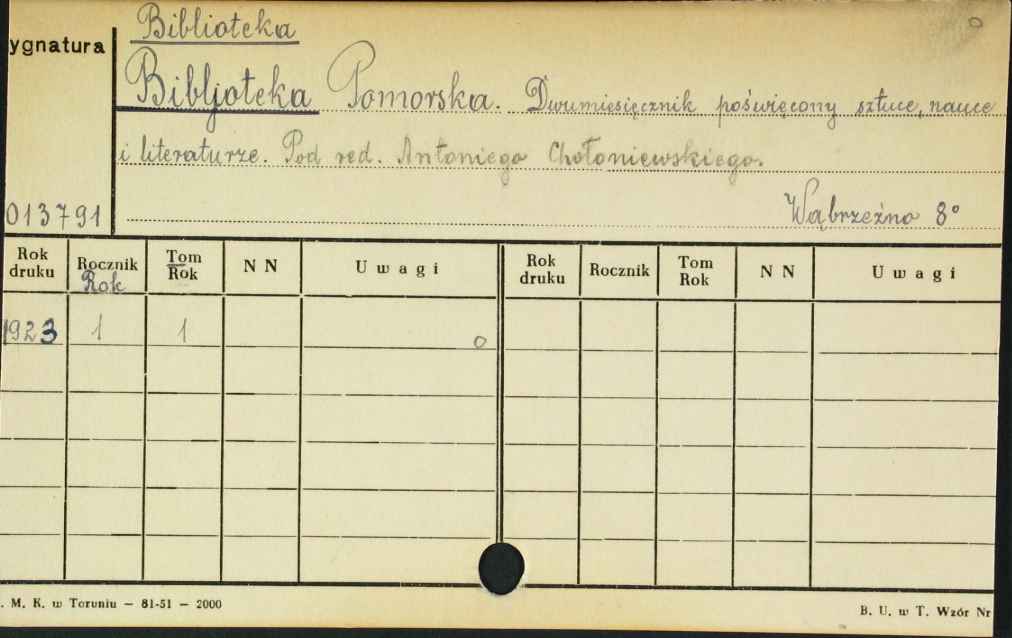 Biblioteka
ygnatura
Bibljoteka Pomorska. Dwumiesięcznik poświęcony sztuce, nauce
i literaturze. Pod red. Antoniego Chołoniewskiego.
013791
Wąbrzeźno 8°
Rok druku Rocznik Rok Tom Rok N N Uwagi Rok druku Rocznik Tom Rok N N Uwagi
1923 1 1 0
. M. K. w Toruniu — 81-51 — 2000
B. U. w T. Wzór Nr